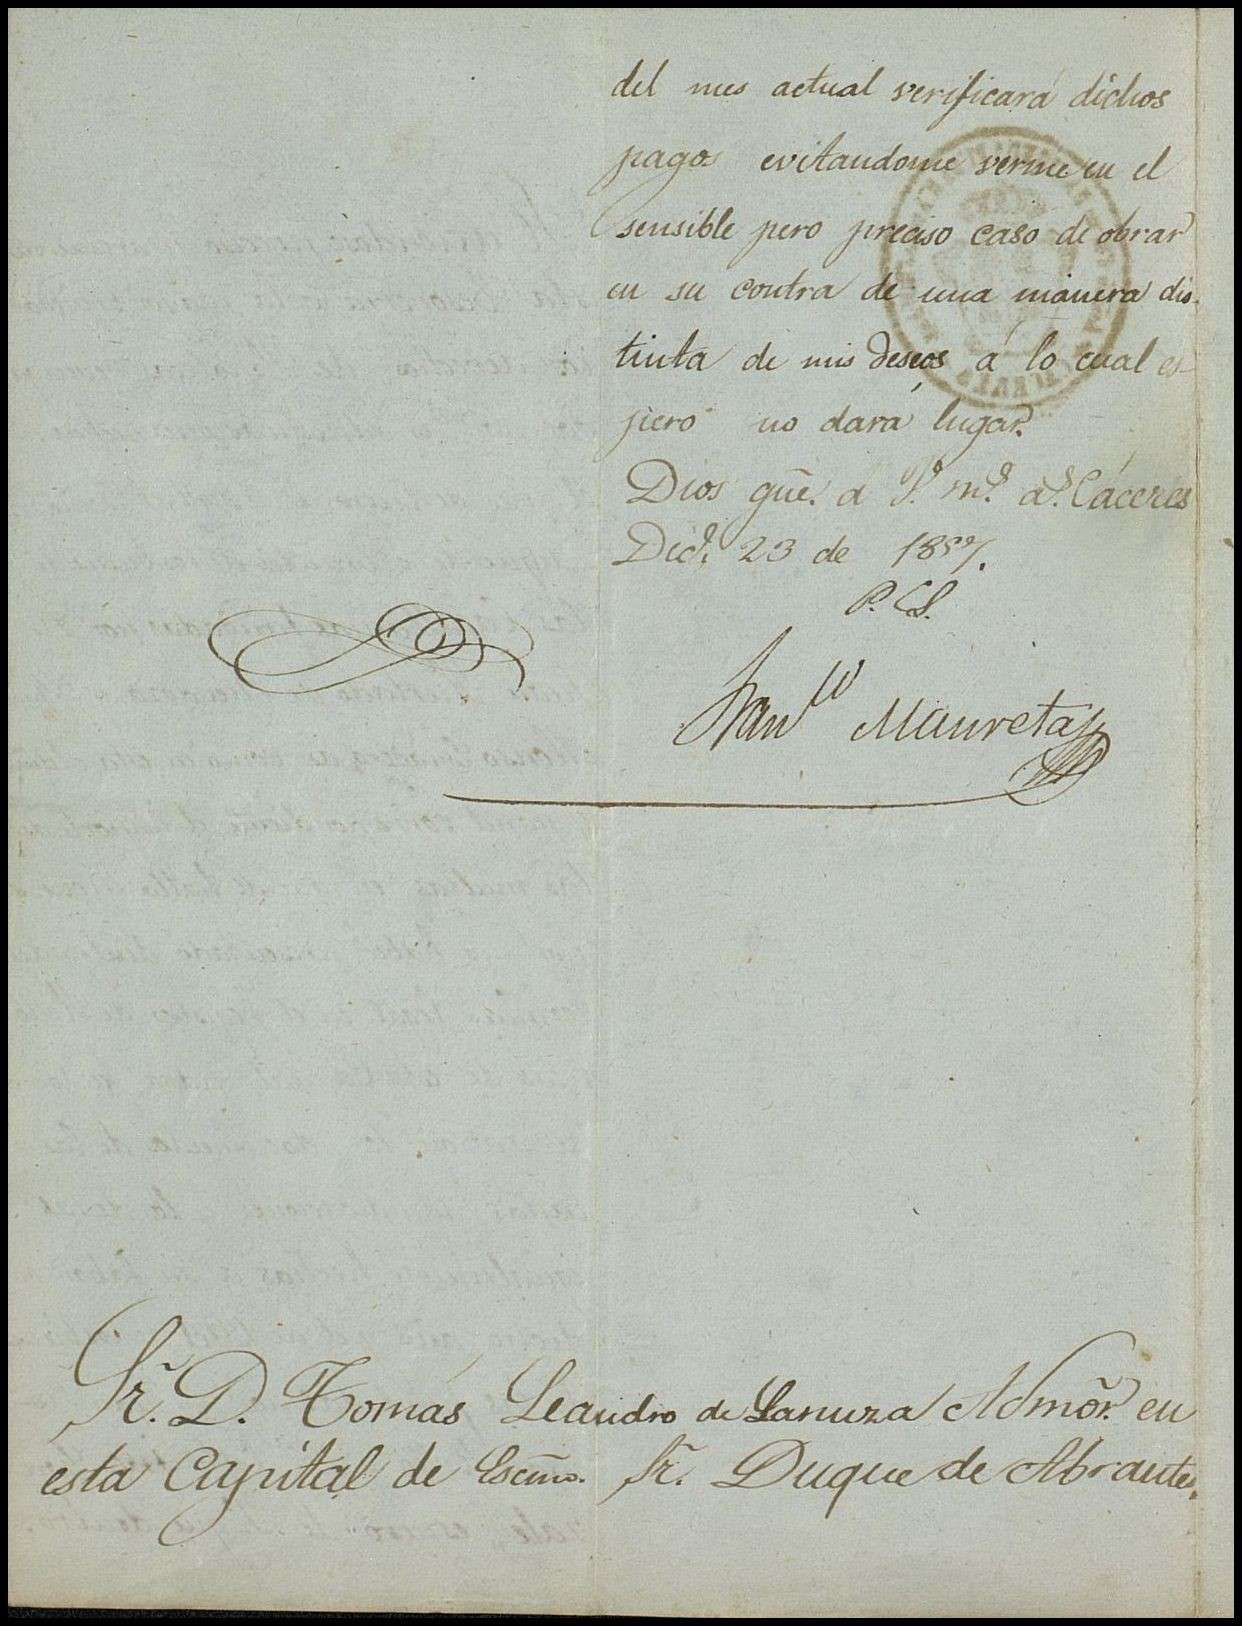 del mes actual verificará dichos
pagos evitandome verme en el
sensible pero preciso caso de obrar
en su contra de una manera dis-
tinta de mis deseos á lo cual es-
pero no dará lugar.
Dios gũe. á V. m.s a.s Cáceres
Dic.e 23 de 1857.
P. S.
Fran.co Maureta
Sr. D. Tomás Leandro de Lanuza Admõr. en
esta Capital de Escmo. Sr. Duque de Abrantes.